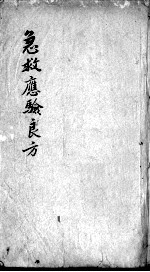 急救應驗良方